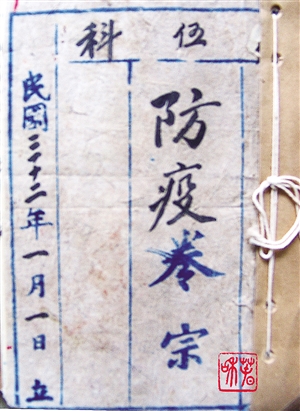 伍科
防疫卷宗
民國三十二年一月一日立